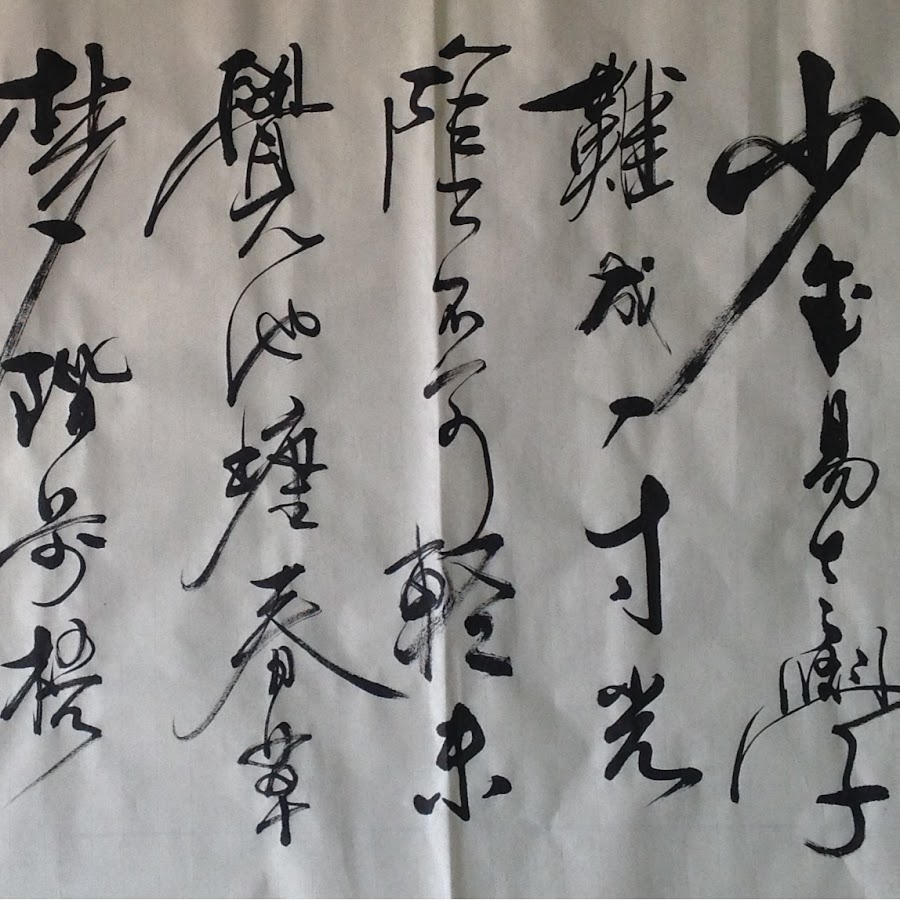 少年易老學
難成一寸光
陰不可輕未
覺池塘春草
梦階前梧